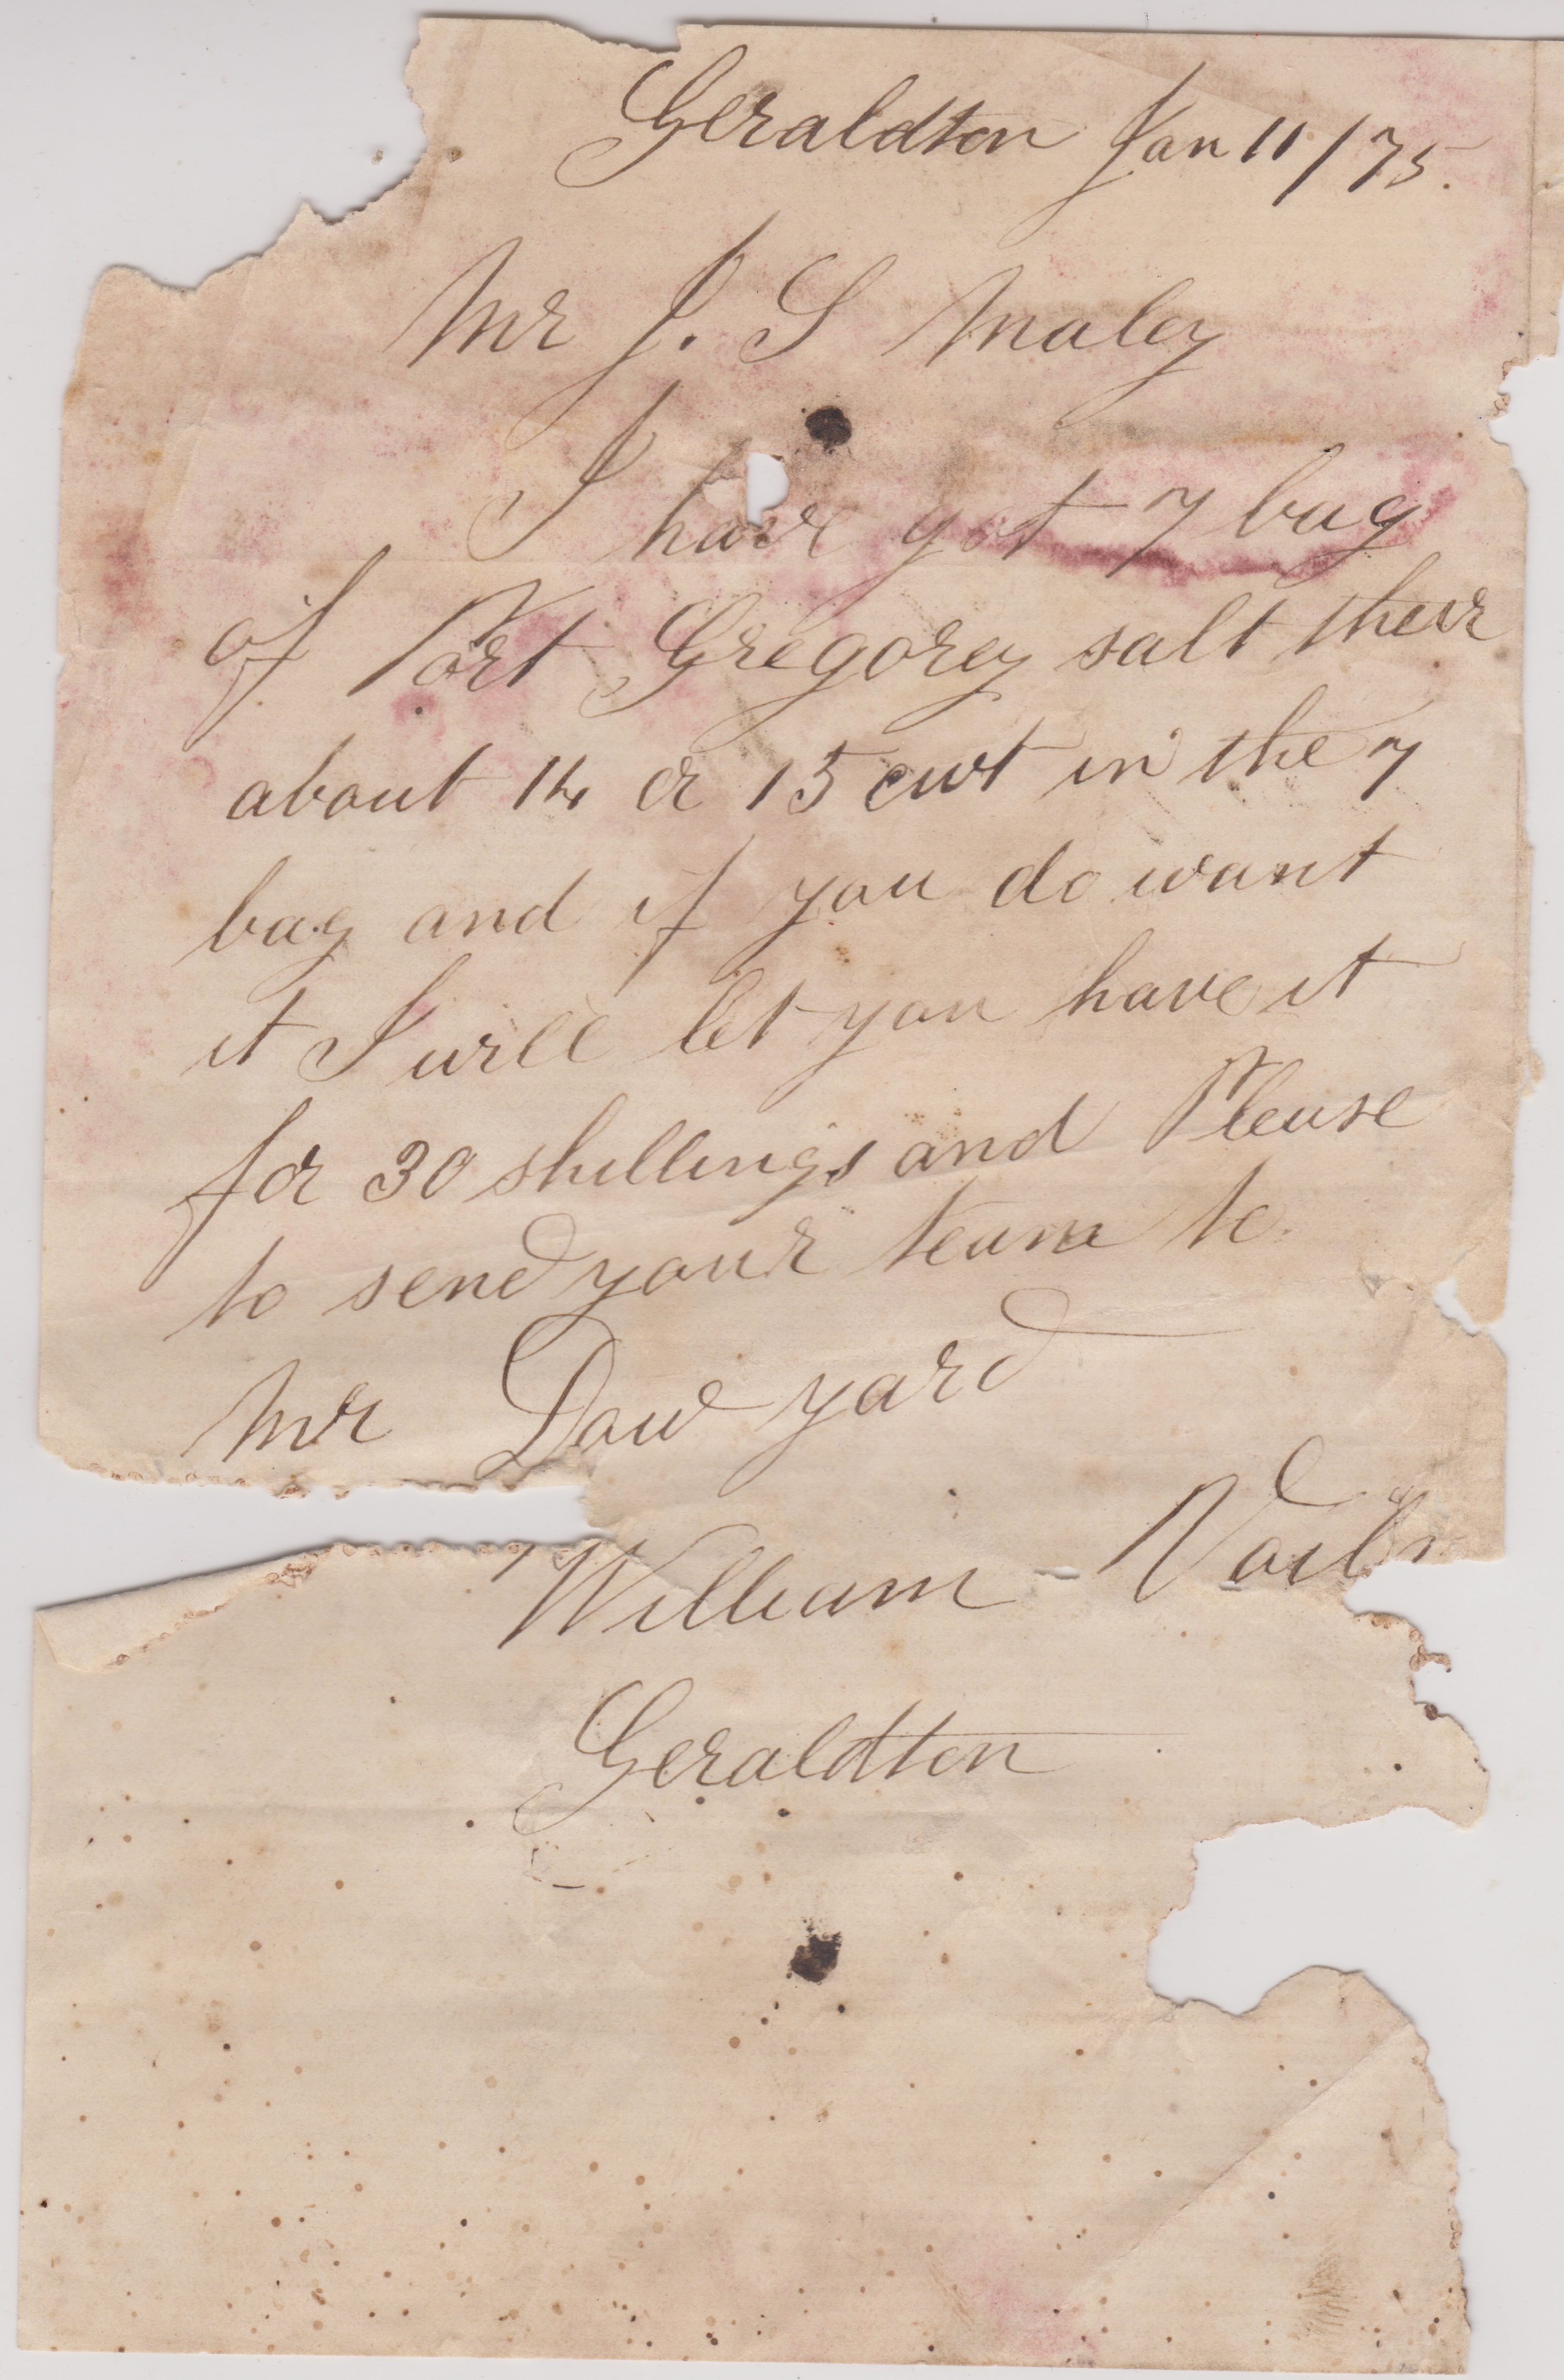 Geraldton Jan 11/75.
Mr J. S Maley
I have got 7 bag
of Port Gregorey salt their
about 14 or 15 cwt in the 7
bag and if you do want
it I will let you have it
for 30 shillings and Please
to send your team to
Mr Dow yard
William
Geraldton